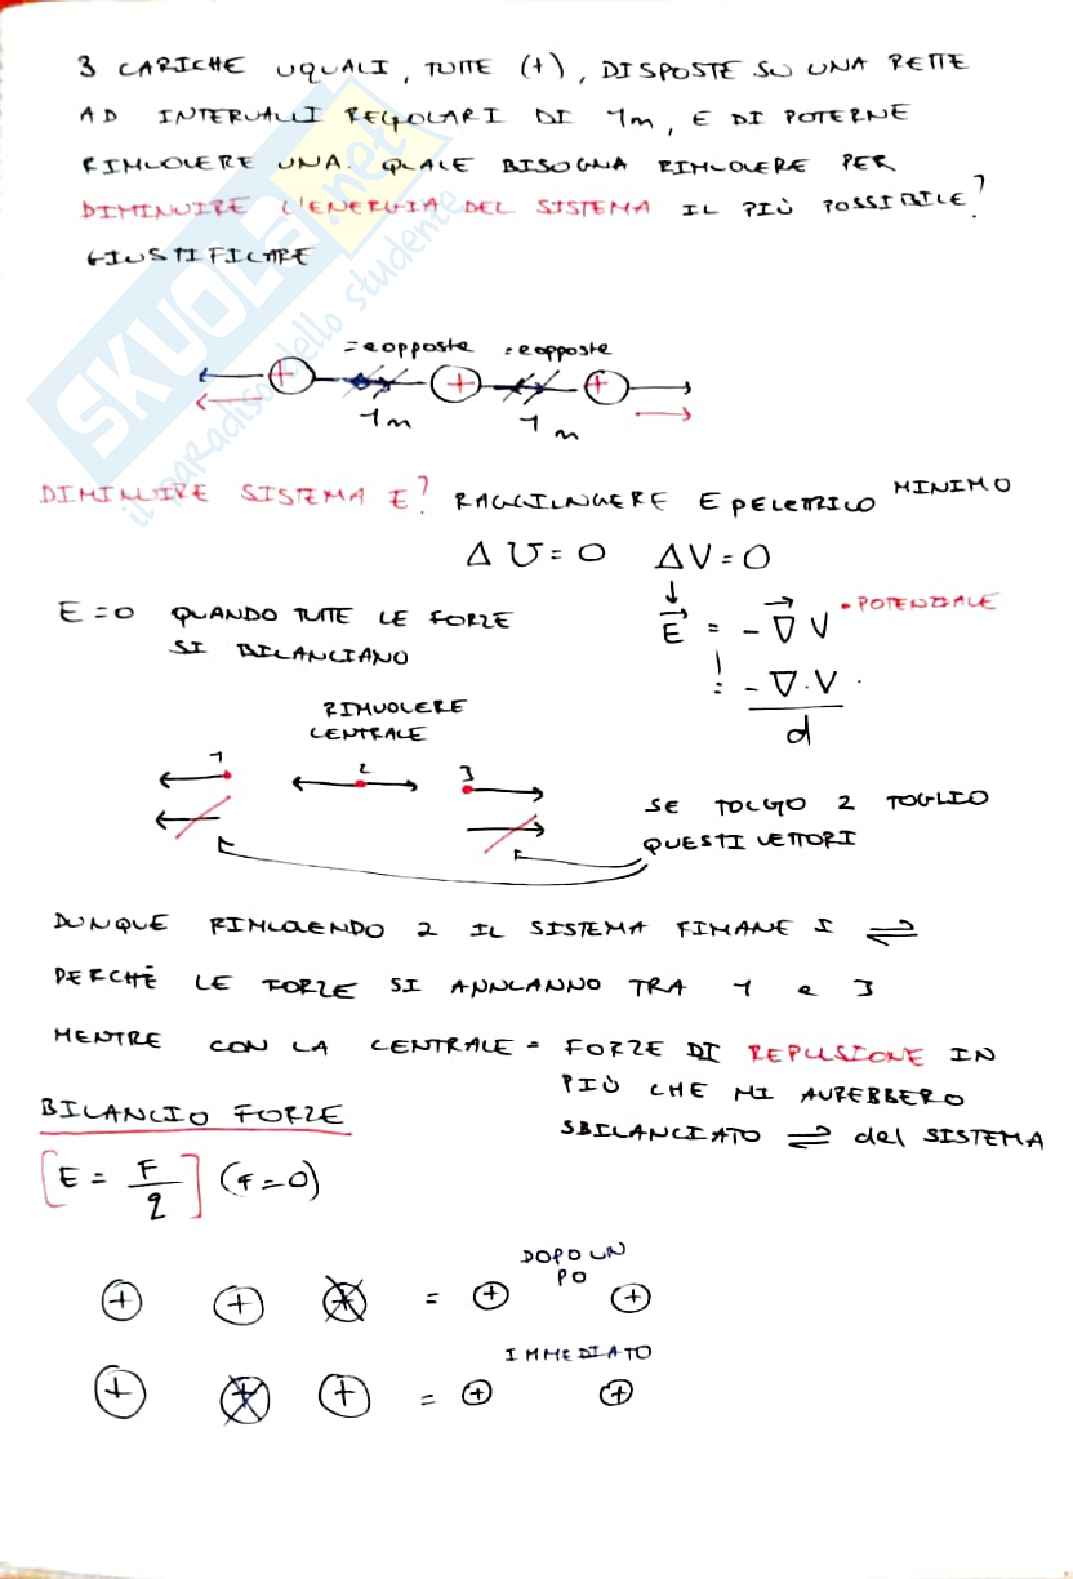 3 CARICHE UGUALI, TUTTE (+), DISPOSTE SU UNA RETTE
AD INTERVALLI REGOLARI DI 1m, E DI POTERNE
RIMUOVERE UNA. QUALE BISOGNA RIMUOVERE PER
DIMINUIRE L'ENERGIA DEL SISTEMA IL PIÙ POSSIBILE?
GIUSTIFICARE
SKUOLA.net
il paradiso dello studente
= e opposte = e opposte
+ + +
1m 1m
DIMINUIRE SISTEMA E? RAGGIUNGERE E PELETTRICO MINIMO
Δ U = 0 ΔV = 0
E = 0 QUANDO TUTTE LE FORZE
SI BILANCIANO
E = - ∇ V • POTENZIALE
= - ∇ . V .
d
RIMUOVERE
CENTRALE
1 2 3
SE TOLGO 2 TOGLIO
QUESTI VETTORI
DUNQUE RIMUOENDO 2 IL SISTEMA RIMANE I ⇌
PERCHÉ LE FORZE SI ANNULANNO TRA 1 e 3
MENTRE CON LA CENTRALE = FORZE DI REPULSIONE IN
PIÙ CHE MI AVREBBERO
SBILANCIATO ⇌ del SISTEMA
BILANCIO FORZE
[E = F/q] (F = 0)
DOPO UN
PO
+ + + = + +
IMMEDIATO
+ + + = + +